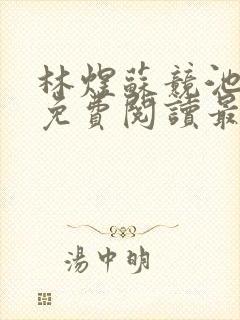 林煜蘇競池
免費閱讀最
湯中明